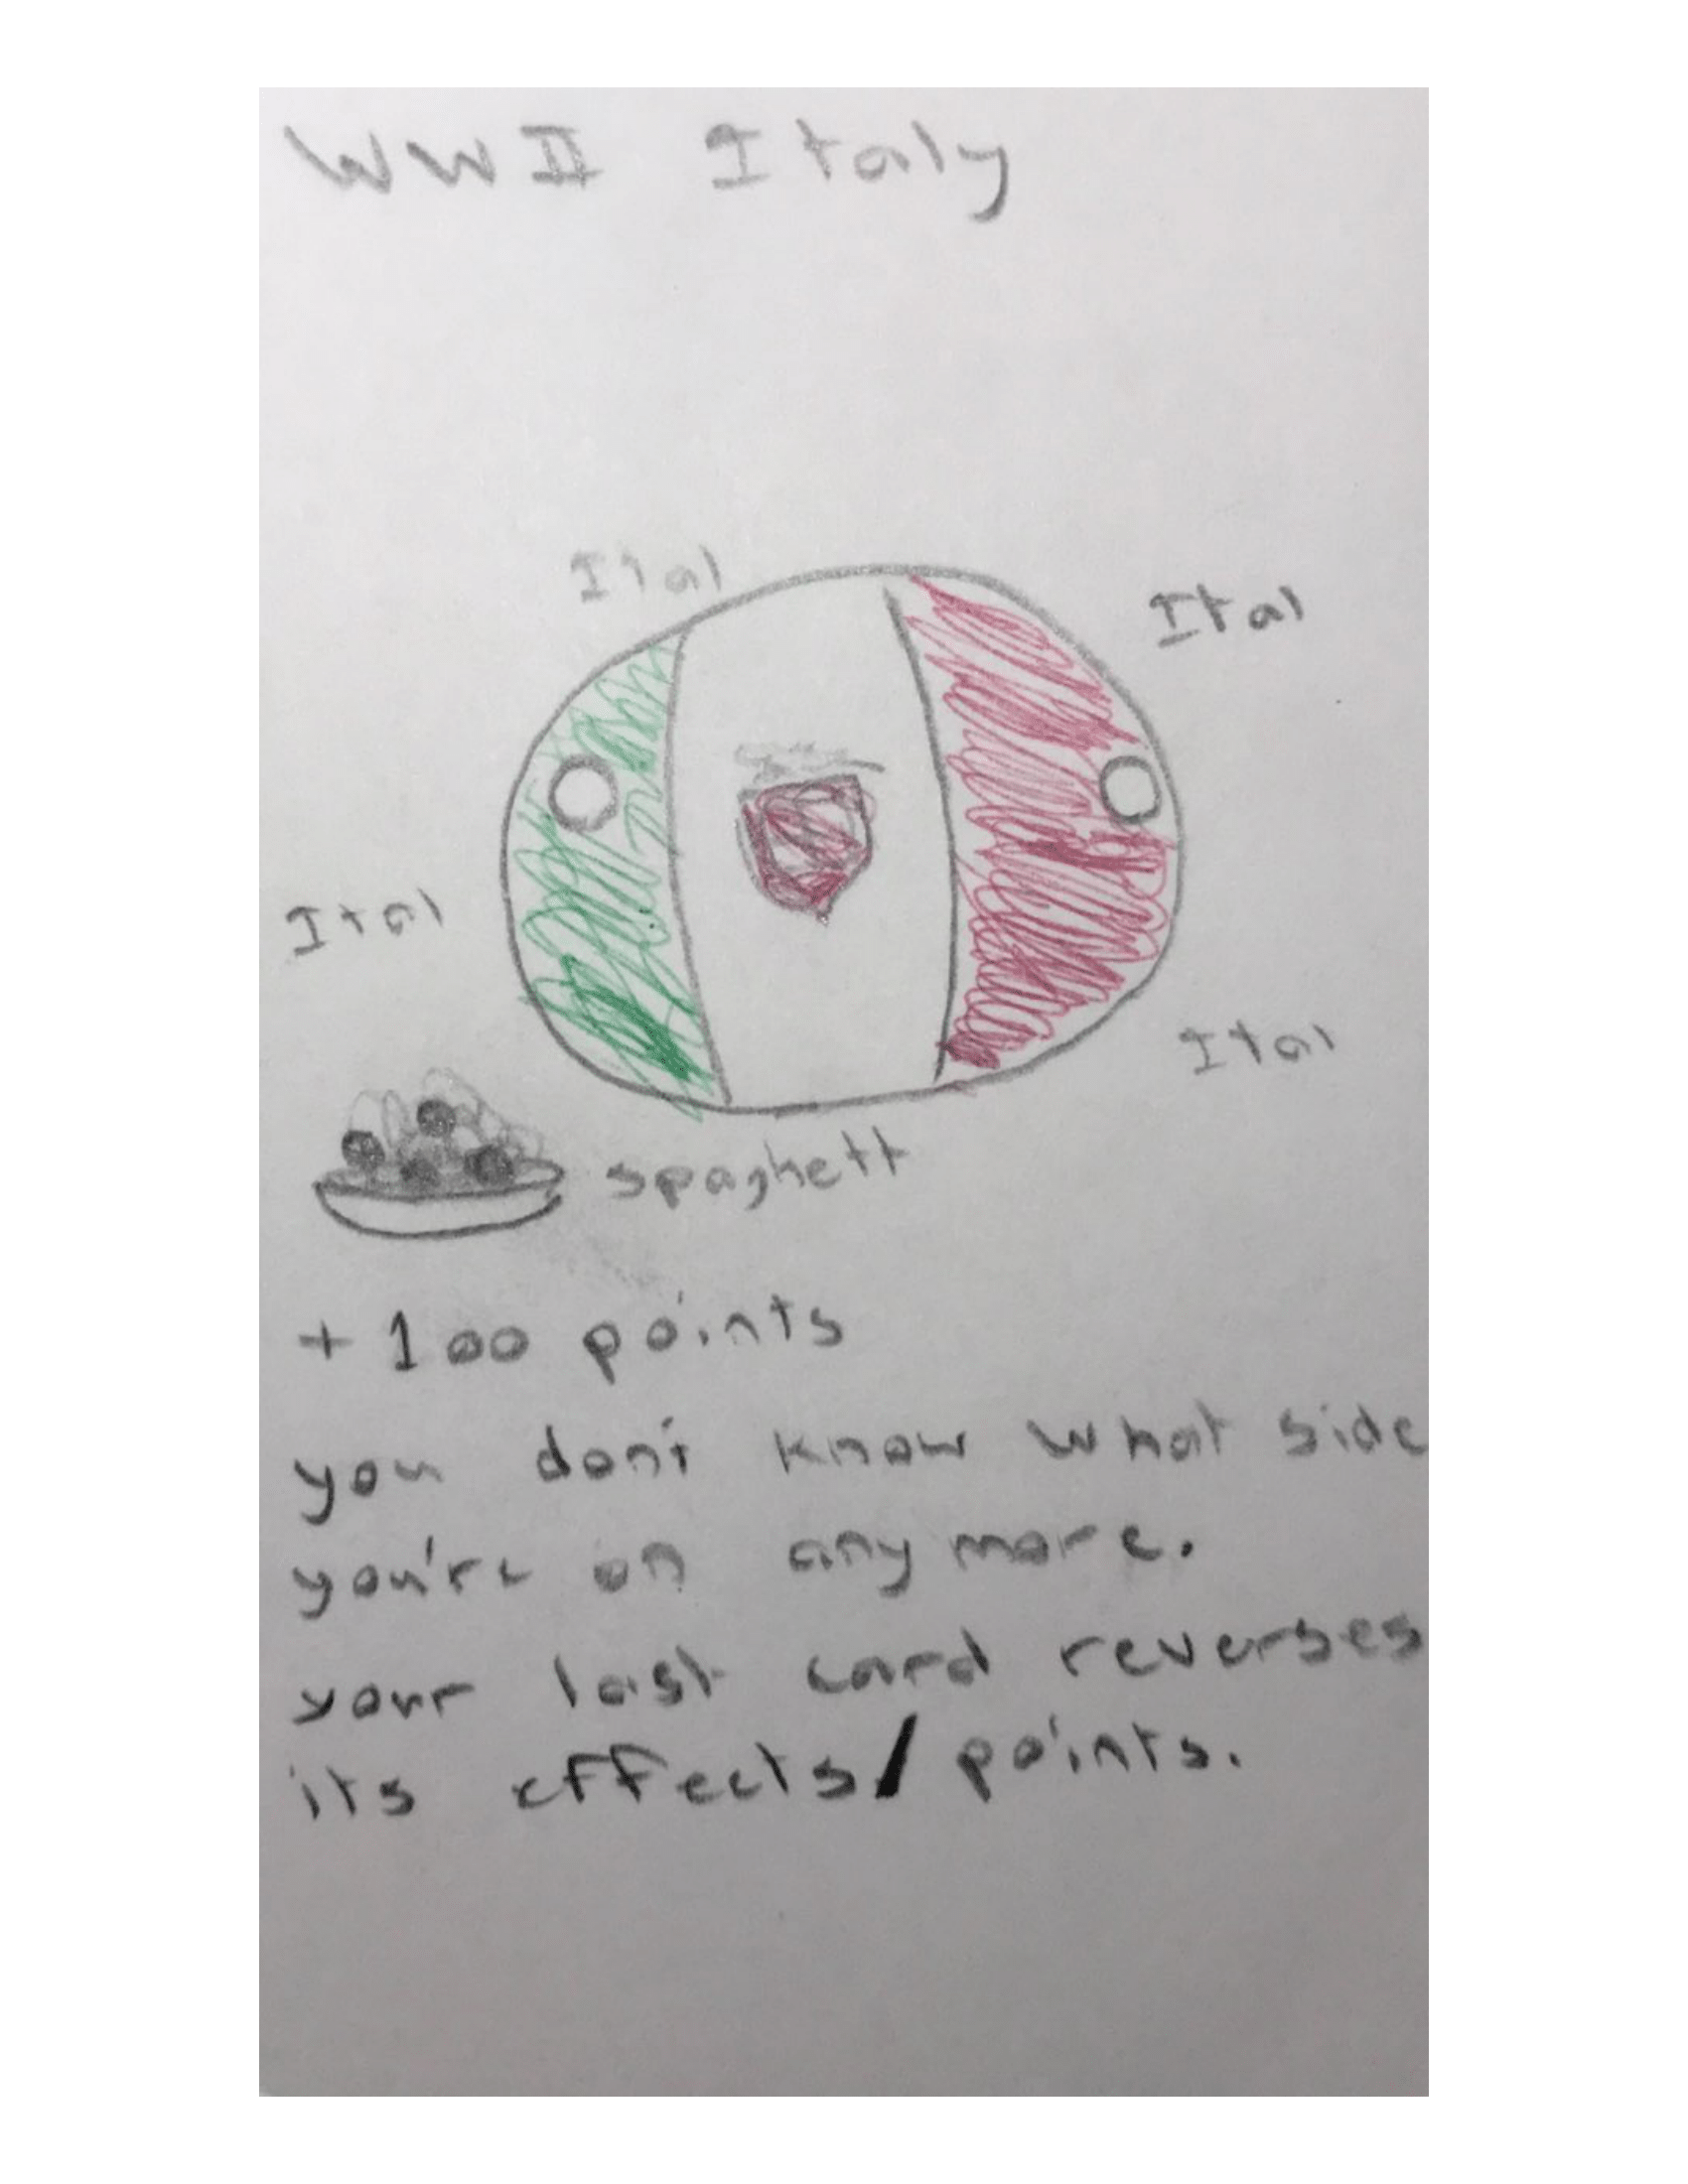 WWII Italy
Ital
Ital
Ital
Ital
spaghett
+100 points
you don't know what side
you're on anymore.
your last card reverses
its effects/points.